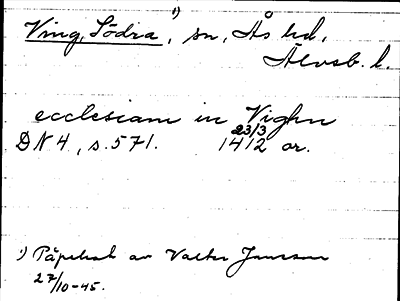 Ving, Södra 1), sn, Ås hd,
Älvsb. l.
ecclesiam in Vighn
23/3
DN 4, s. 571. 1412 or.
1) Påpekat av Valter Jansson
27/10-45.